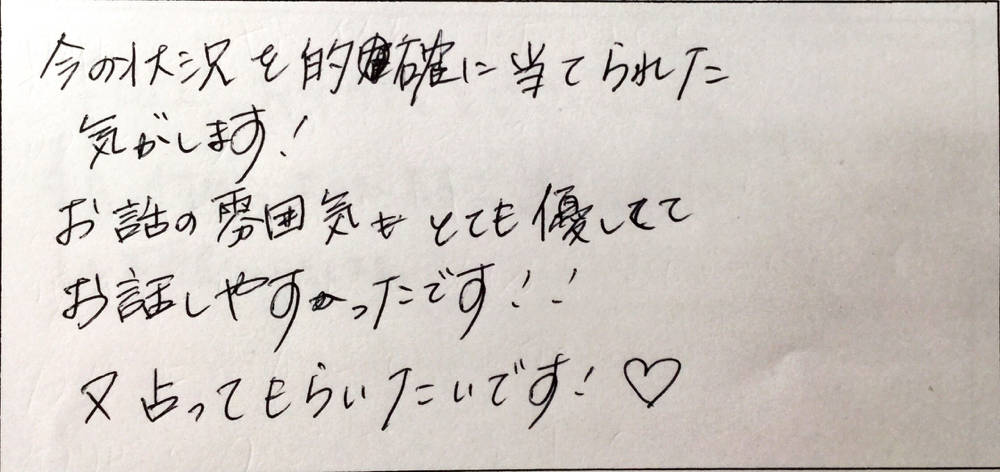 今の状況を的確に当てられた
気がします!
お話の雰囲気もとても優してて
お話しやすかったです!!
又占ってもらいたいです!♡